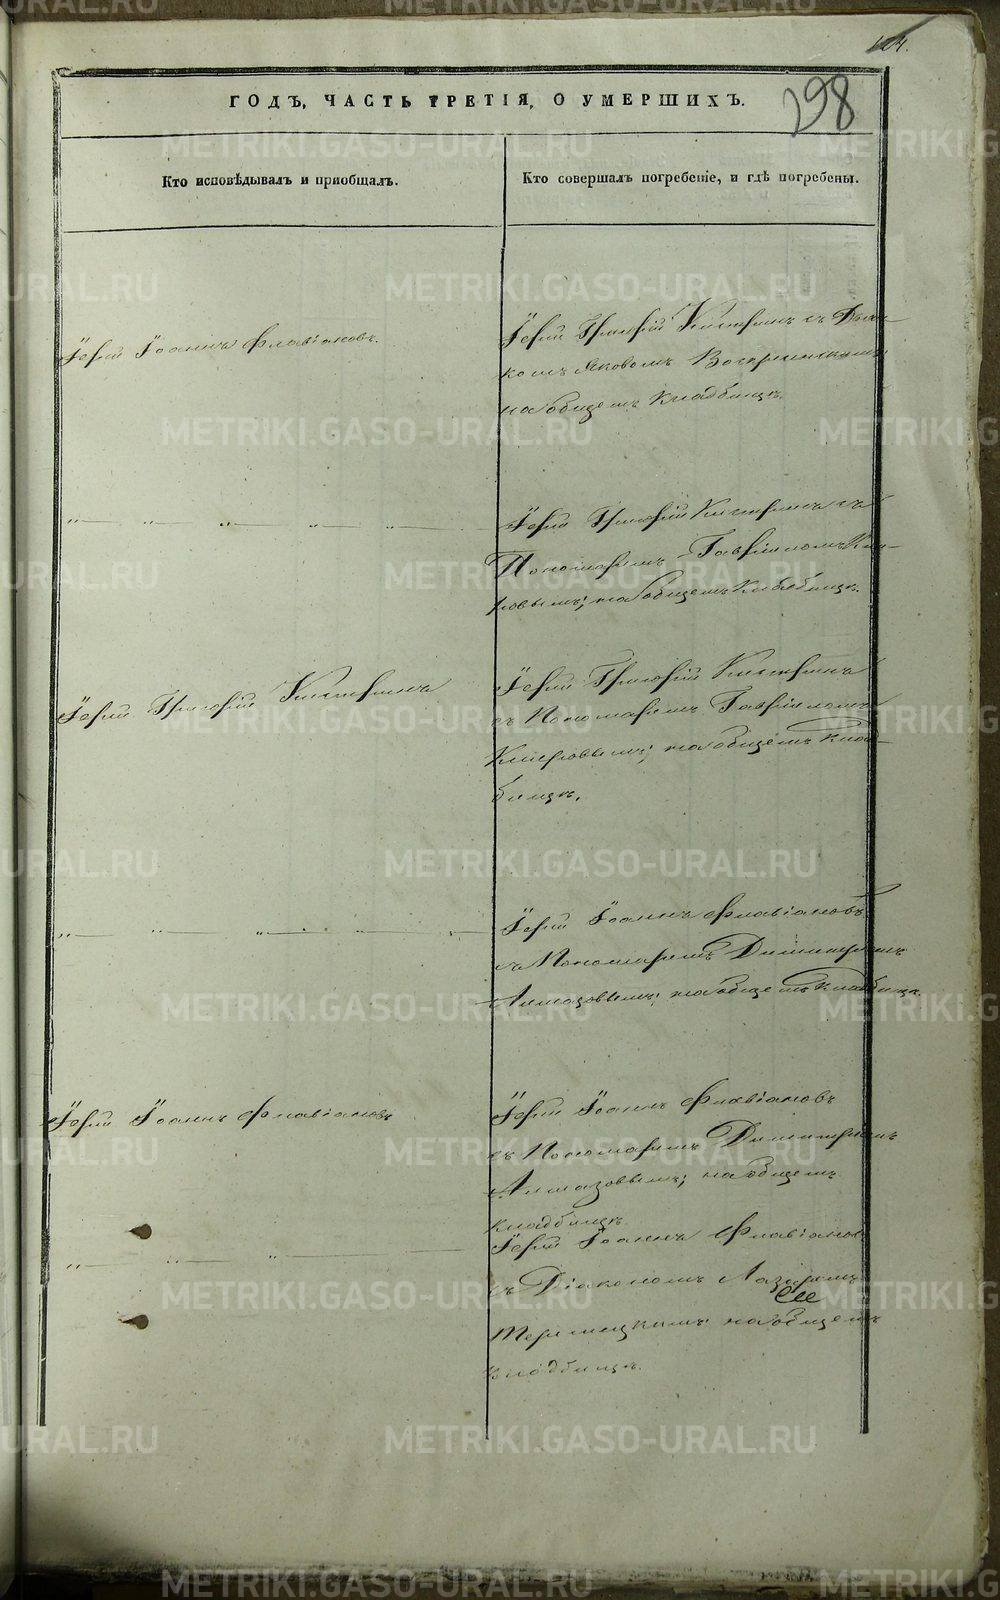 124.
298
ГОДЪ, ЧАСТЬ ТРЕТІЯ, О УМЕРШИХЪ.
Кто исповѣдывалъ и пріобщалъ.
Кто совершалъ погребеніе, и гдѣ погребены.
Іерей Іоаннъ Флавіановъ.
Іерей Григорій съ Дьяч-
комъ Яковомъ Воскресенскимъ
на общемъ кладбищѣ.
Іерей Григорій съ
Пономаремъ Гавріиломъ
на общемъ кладбищѣ.
Іерей Григорій
Іерей Григорій
съ Пономаремъ Гавріиломъ
на общемъ клад-
бищѣ.
Іерей Іоаннъ Флавіановъ
съ Пономаремъ Димитріемъ
Алмазовымъ; на общемъ кладбищѣ.
Іерей Іоаннъ Флавіановъ
Іерей Іоаннъ Флавіановъ
съ Пономаремъ Димитріемъ
Алмазовымъ; на общемъ
кладбищѣ.
Іерей Іоаннъ Флавіановъ
съ Діакономъ Лазаремъ
на общемъ
кладбищѣ.
METRIKI.GASO-URAL.RU